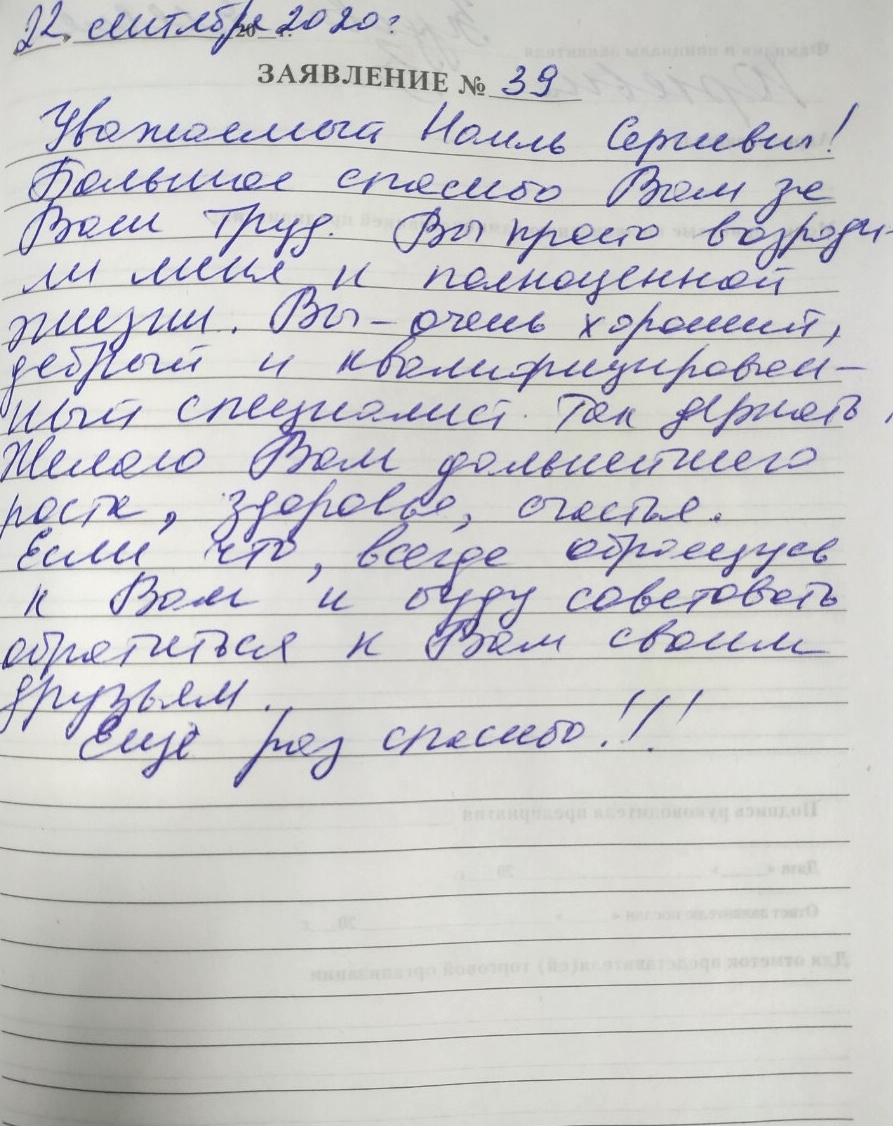 22 сентября 2020 г
ЗАЯВЛЕНИЕ № 39
Уважаемый Наиль Сергиевич!
Большое спасибо Вам за
Ваш труд. Вы просто возроди-
ли меня к полноценной
жизни. Вы – очень хороший,
добрый и квалифицирован-
ный специалист. Так держать,
Желаю Вам дальнейшего
роста, здоровья, счастья.
Если что, всегда обращусь
к Вам и буду советовать
обратиться к Вам своим
друзьям.
Еще раз спасибо!!!
Подпись руководителя предприятия
Дата « » 20 г.
Ответ заявителю послан « » 20 г.
Для отметок представителя(ей) торговой организации